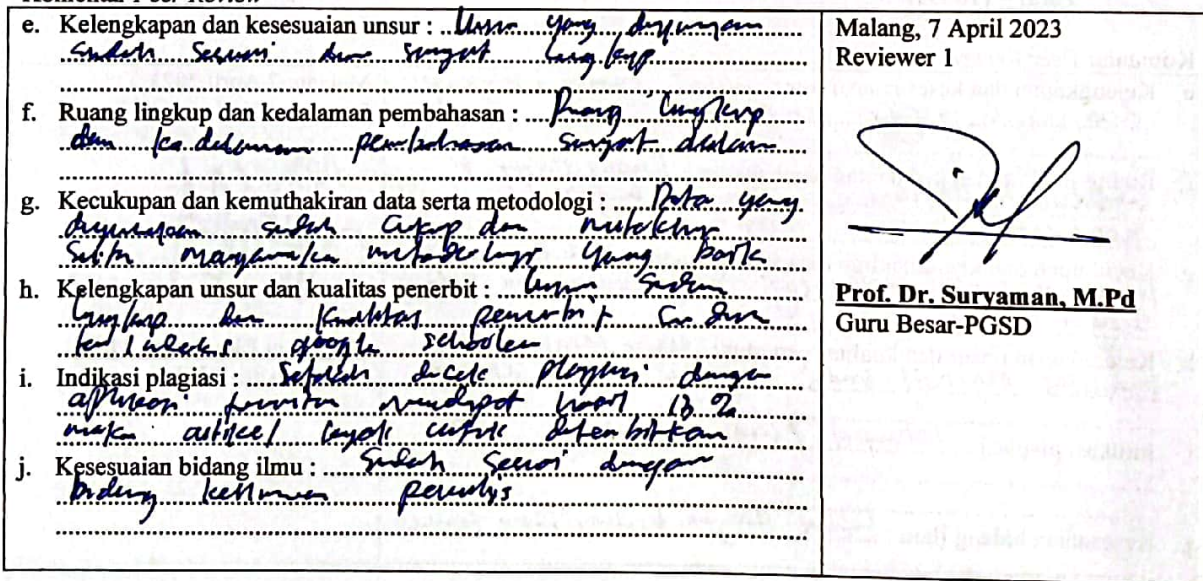 Komentar Peer Review
e. Kelengkapan dan kesesuaian unsur : Unsur yang digunakan
sudah sesuai dan sangat lengkap
f. Ruang lingkup dan kedalaman pembahasan : Ruang lingkup
dan kedalaman pembahasan sangat dalam
g. Kecukupan dan kemuthakiran data serta metodologi : Data yang
digunakan sudah cukup dan mutakhir
metodologi yang baik
h. Kelengkapan unsur dan kualitas penerbit : Unsur sudah
lengkap dan kualitas penerbit
google
i. Indikasi plagiasi : Setelah dicek plagiasi dengan
mendapat hasil 18 %
maka layak untuk diterbitkan
j. Kesesuaian bidang ilmu : Sudah sesuai dengan
bidang penulis
Malang, 7 April 2023
Reviewer 1
Prof. Dr. Suryaman, M.Pd
Guru Besar-PGSD